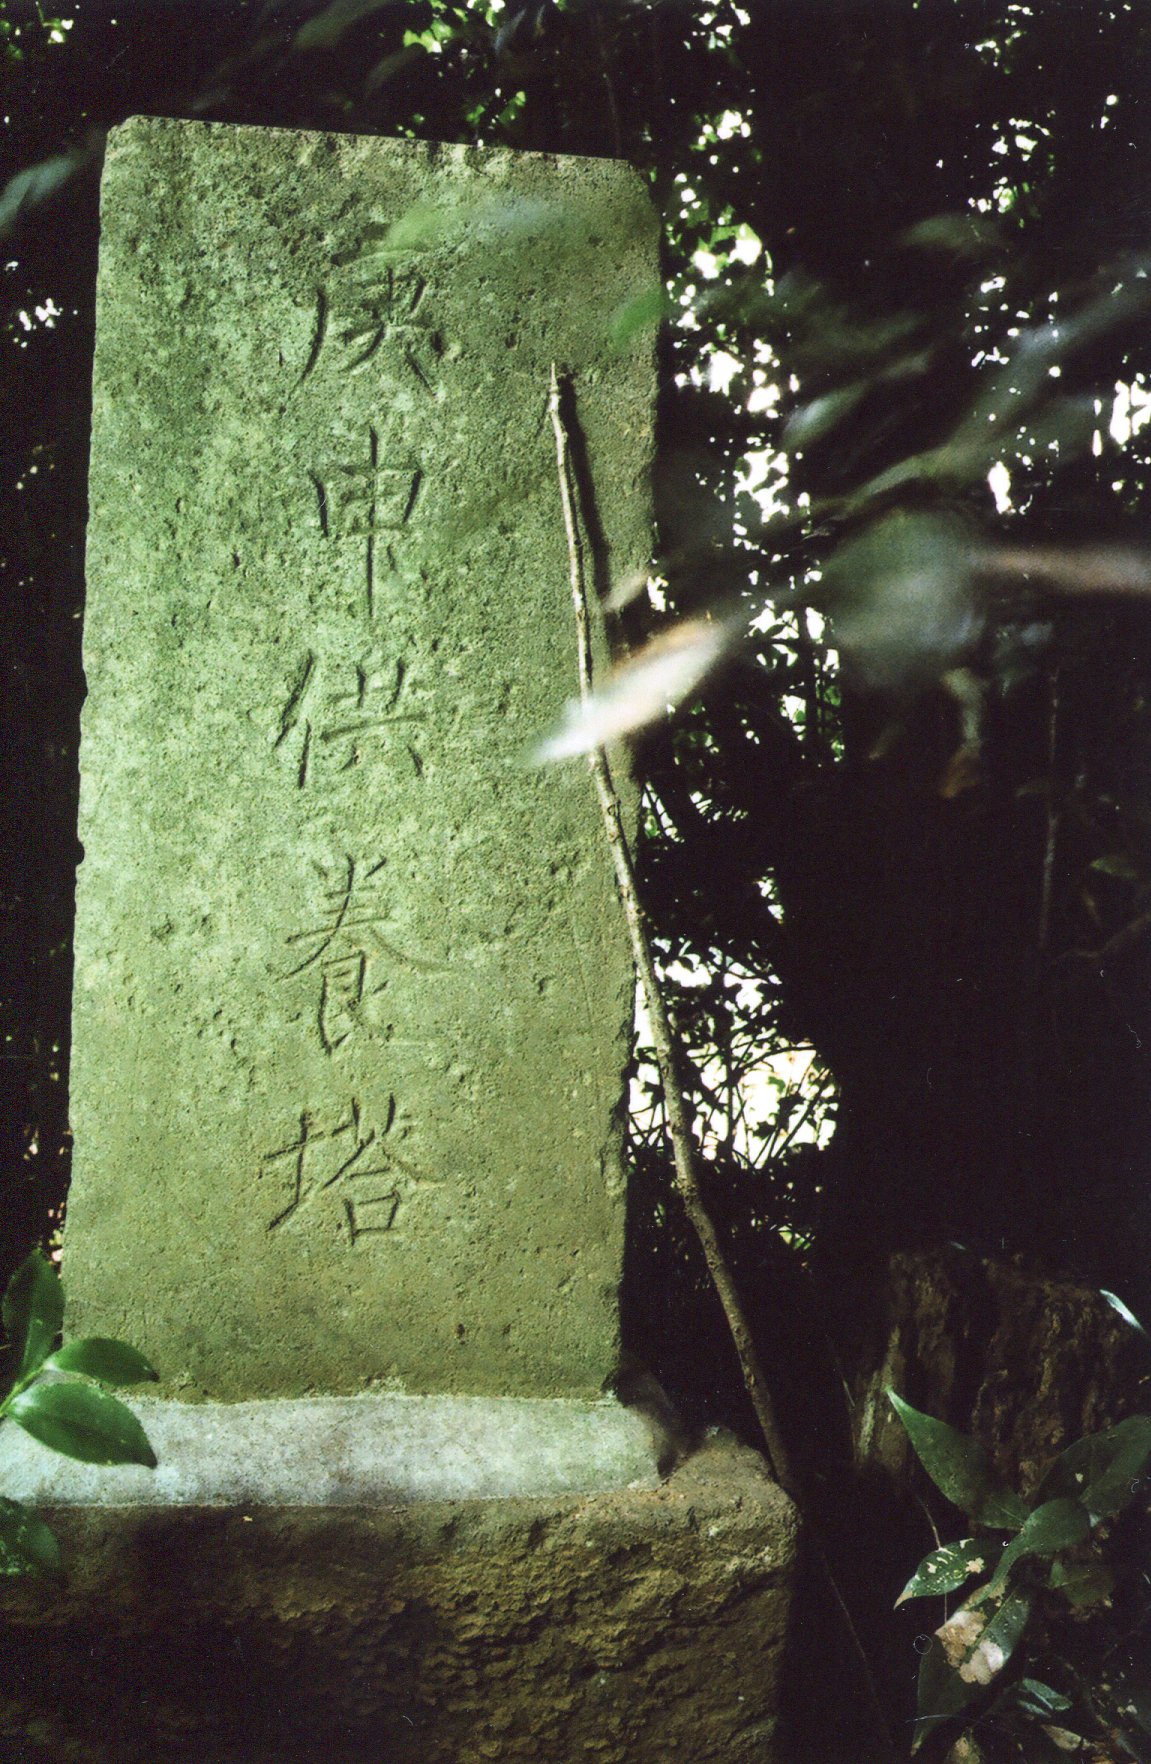 庚申供養塔